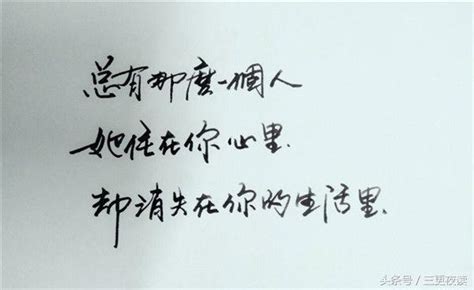 总有那麽一個人
她住在你心里.
却消失在你的生活里.
头条号/三更夜读